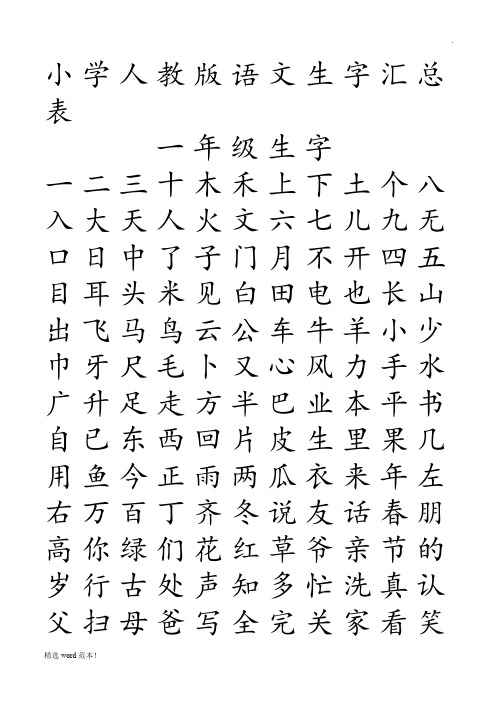 小学人教版语文生字汇总
表
一年级生字
一二三十木禾上下土个八
入大天人火文六七儿九无
口日中了子门月不开四五
目耳头米见白田电也长山
出飞马鸟云公车牛羊小少
巾牙尺毛卜又心风力手水
广升足走方半巴业本平书
自已东西回片皮生里果几
用鱼今正雨两瓜衣来年左
右万百丁齐冬说友话春朋
高你绿们花红草爷亲节的
岁行古处声知多忙洗真认
父扫母爸写全完关家看笑
精选word范本!